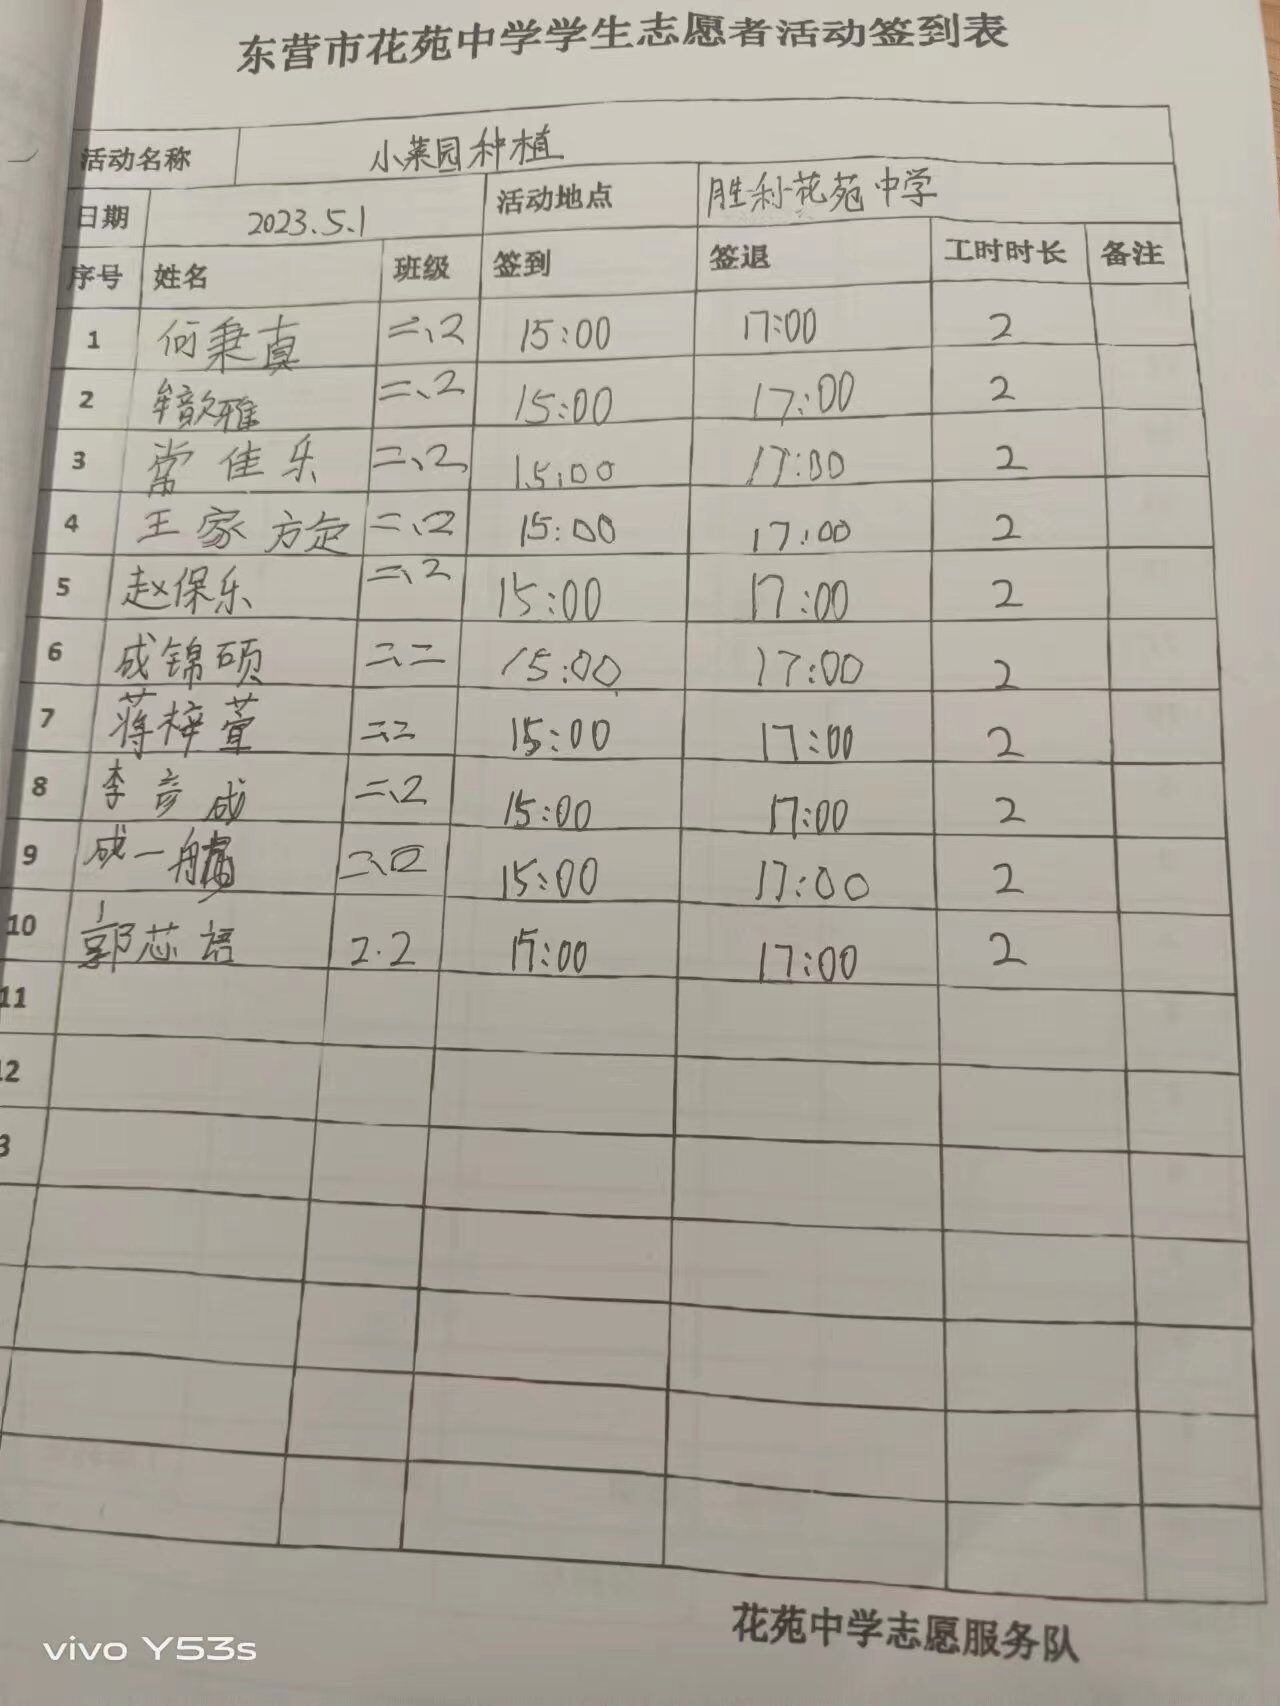 东营市花苑中学学生志愿者活动签到表
活动名称 小菜园种植
日期 2023.5.1 活动地点 胜利花苑中学
序号 姓名 班级 签到 签退 工时时长 备注
1 何秉真 二、2 15:00 17:00 2
2 雅 二、2 15:00 17:00 2
3 常佳乐 二、2 15:00 17:00 2
4 王家方定 二、2 15:00 17:00 2
5 赵保乐 二、2 15:00 17:00 2
6 成锦硕 二、二 15:00 17:00 2
7 蒋梓萱 二、二 15:00 17:00 2
8 李彦成 二、2 15:00 17:00 2
9 成一 二、2 15:00 17:00 2
10 郭芯语 2.2 15:00 17:00 2
11
12
3
花苑中学志愿服务队
vivo Y53s